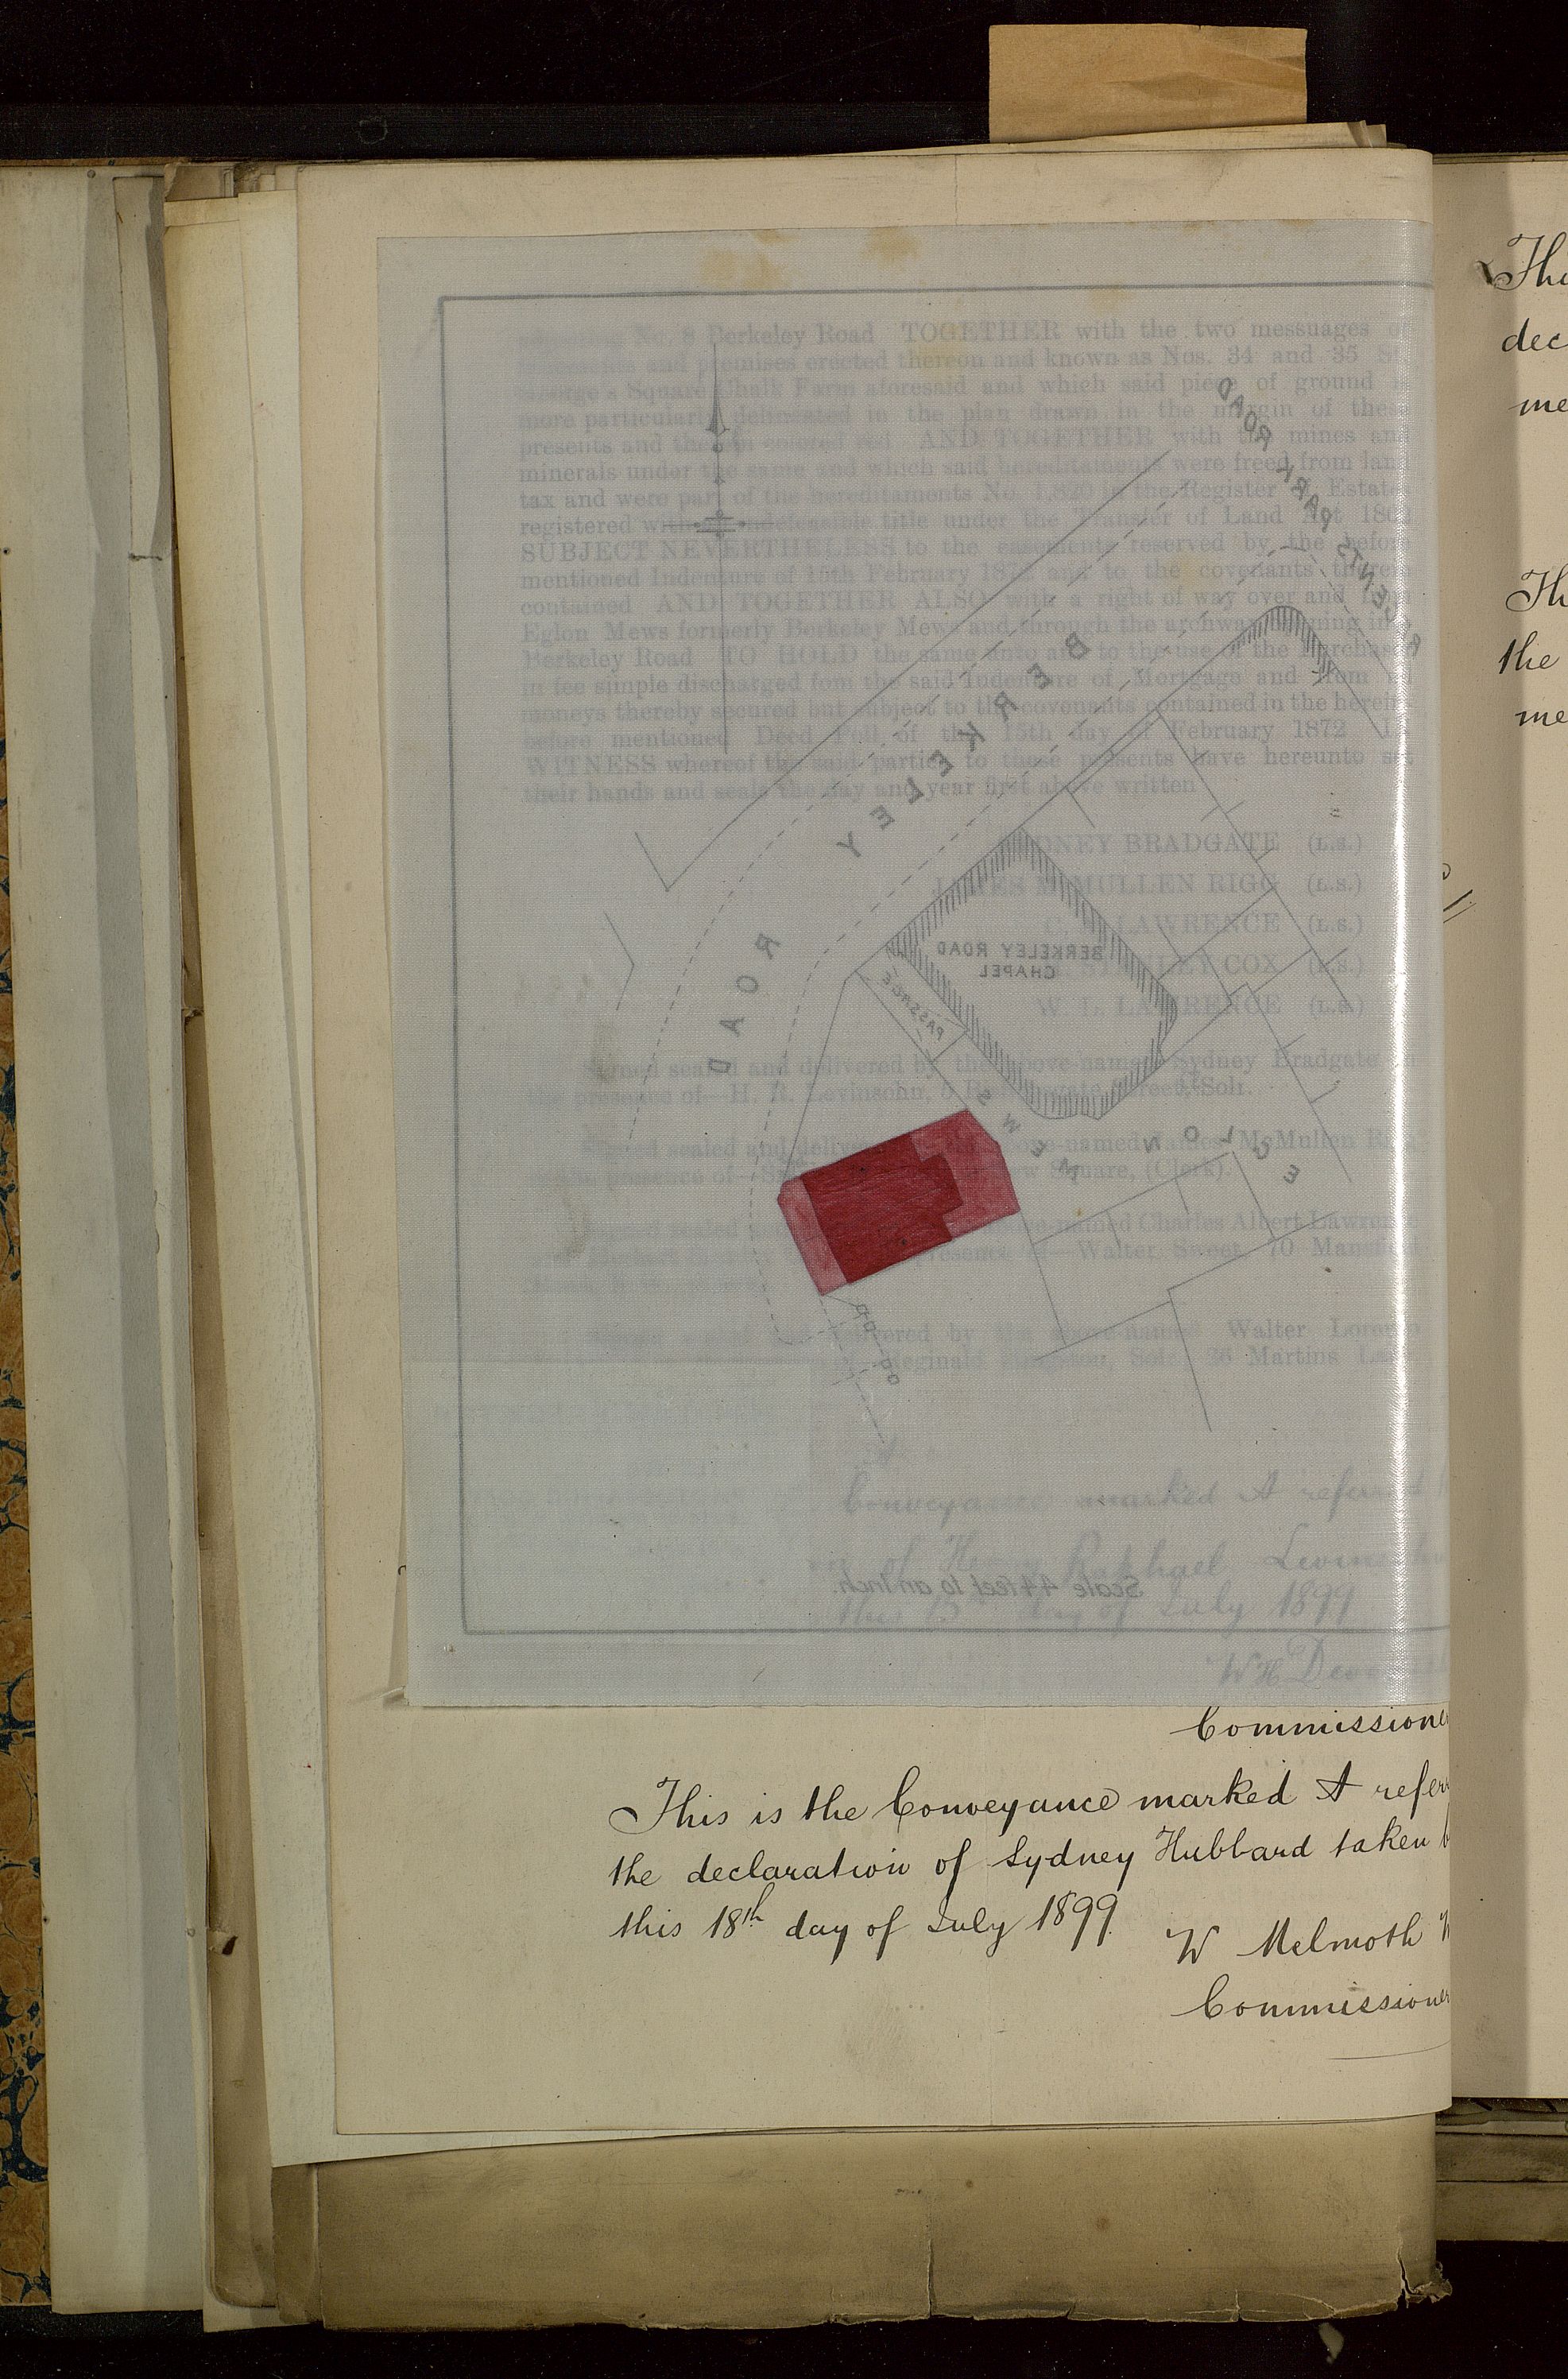 No. 8 Berkeley Road TOGETHER with the two messuages or
and premises erected thereon and known as Nos. 34 and 35 St.
George's Square Chalk Farm aforesaid and which said piece of ground is
more particularly delineated in the plan drawn in the margin of these
presents and therein colored red AND TOGETHER with the mines and
minerals under the same and which said hereditaments were freed from land
tax and were part of the hereditaments No. 1,820 in the Register of Estates
registered with indefeasible title under the Transfer of Land Act 186
SUBJECT NEVERTHELESS to the easements reserved by the before
mentioned Indenture of 15th February 1872 and to the covenants therein
contained AND TOGETHER ALSO with a right of way over and from
Eglon Mews formerly Berkeley Mews and through the archway opening into
Berkeley Road TO HOLD the same unto and to the use of the Purchaser
in fee simple discharged from the said Indenture of Mortgage and from all
moneys thereby secured but subject to the covenants contained in the herein
before mentioned Deed Poll of the 15th day of February 1872 IN
WITNESS whereof the said parties to these presents have hereunto set
their hands and seals the day and year first above written
REGENTS PARK ROAD
BERKELEY ROAD
BERKELEY ROAD
CHAPEL
PASSAGE
EGLON MEWS
SYDNEY BRADGATE (L.S.)
JAMES McMULLEN RIGG (L.S.)
LAWRENCE (L.S.)
STANLEY COX (L.S.)
W. L. LAWRENCE (L.S.)
Signed sealed and delivered by the above-named Sydney Bradgate in
the presence of—H. R. Levinsohn, Street, Solr.
Signed sealed and delivered above-named James McMullen Rigg
in the presence of— Square, (Clerk).
sealed above-named Charles Albert Lawrence
presence of—Walter Sweet, 70 Mansfield
delivered by the above-named Walter Lorenzo
Reginald Solr. 26 Martins Lane
Conveyance marked A referred
of Henry Raphael Levinsohn
Scale 44 feet to an Inch.
this day of July 1899
W H
Commissioner
This is the Conveyance marked A refer
the declaration of Sydney Hubbard taken b
this 18th day of July 1899
W Melmoth
Commissioner
Thi
dec
me
Th
the
me